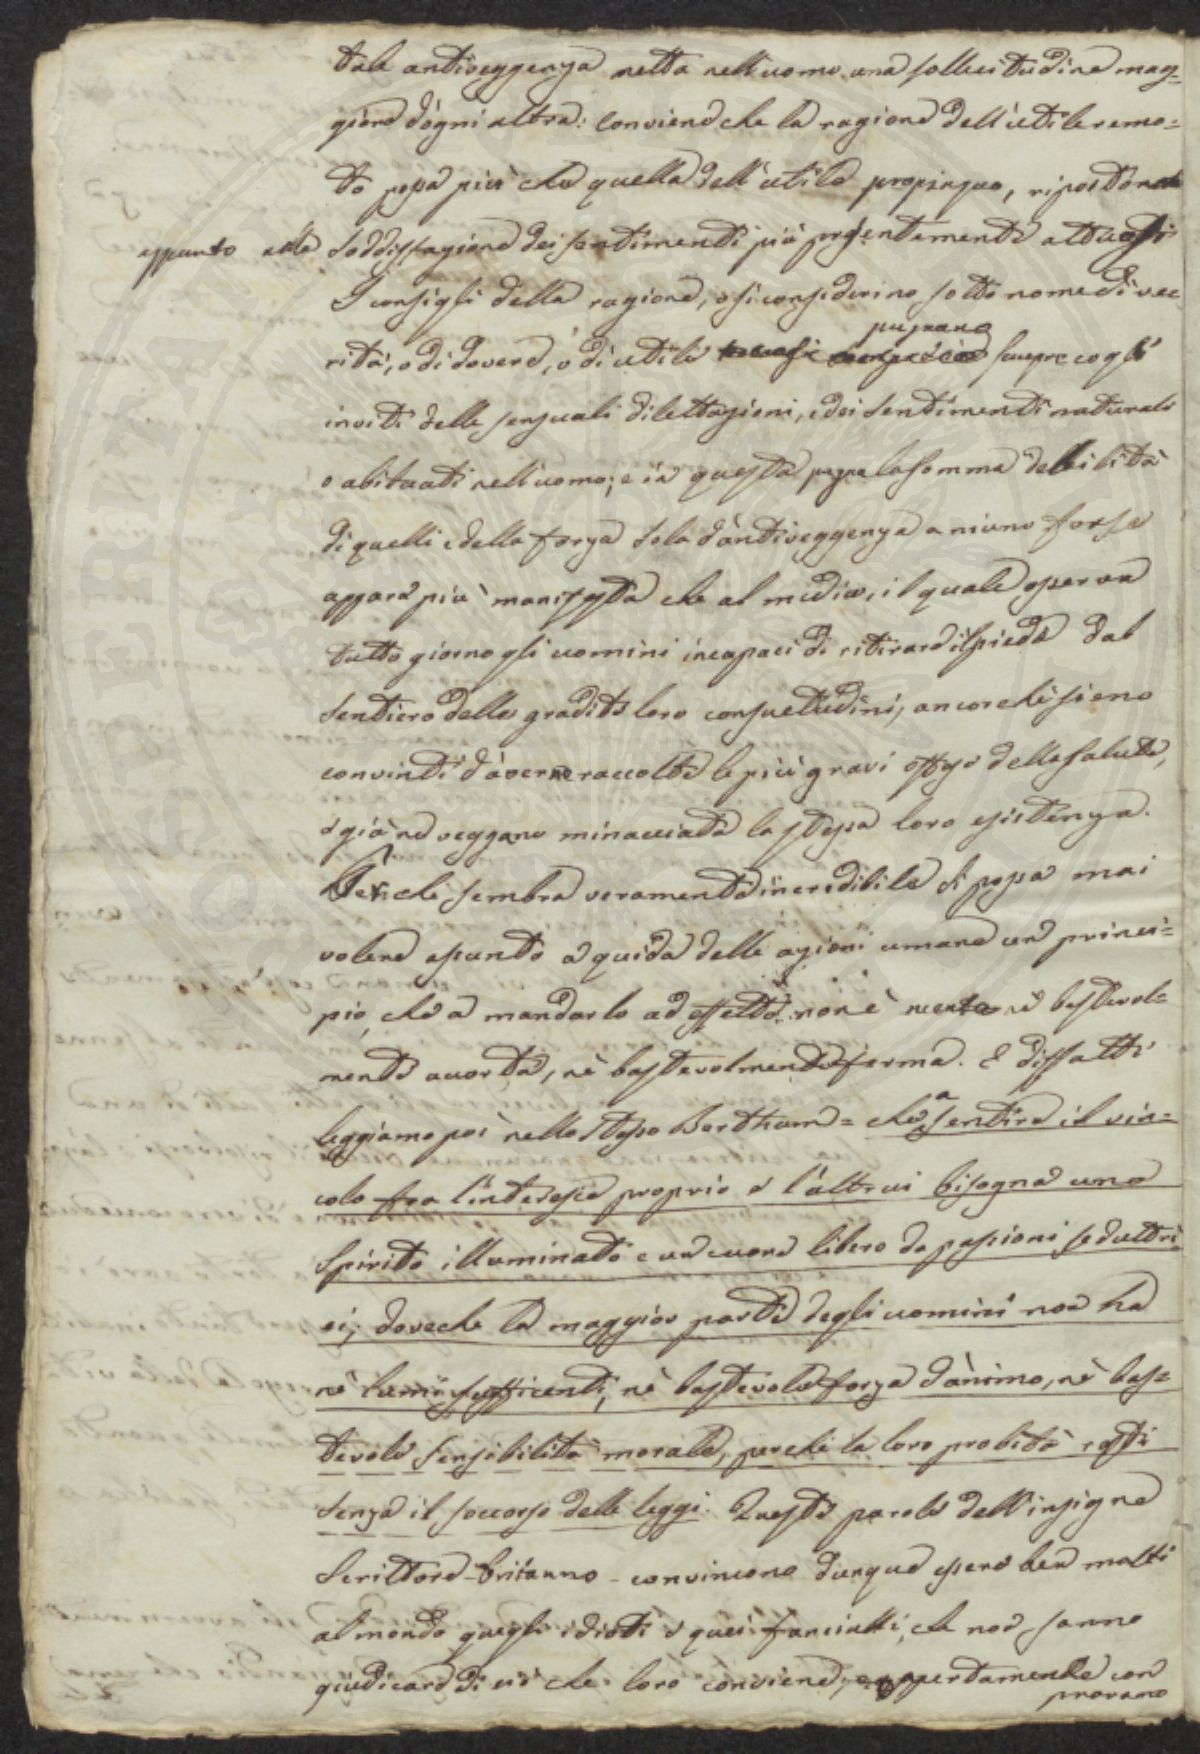 tale antiveggenza metta nell'uomo una sollecitudine mag=
giore d'ogni altra: conviene che la ragione dell'utile remo=
to possa più che quella dell'utile propinquo, riposto nella
appunto alla soddisfazione dei sentimenti più presentemente attuosi
I consigli della ragione, o si considerino sotto nome di ve=
pugnano
rità, o di dovere, o di utile sempre cogli
inviti delle sensuali dilettazioni, e dei sentimenti naturali
o abituati nell'uomo; e in questa pugna la somma debilità
di quelli e della forza sola d'antiveggenza a niuno forse
appare più manifesta che al medico, il quale osserva
tutto giorno gli uomini incapaci di ritirare il piede dal
sentiero delle gradite loro consuetudini, ancorchè sieno
convinti d'averne raccolte le più gravi offese della salute,
e già ne veggano minacciata la stessa loro esistenza.
Perchè sembra veramente incredibile si possa mai
volere assunto a guida delle azioni umane un princi=
pio, che a mandarlo ad effetto non è mente nè bastevol=
mente accorta, nè bastevolmente ferma. E diffatti
leggiamo poi nello stesso Bentham = che a sentire il vin=
colo fra l'interesse proprio e l'altrui bisogna uno
spirito illuminato e un cuore libero da passioni seduttri=
ci; dovechè la maggior parte degli uomini non ha
nè lumi sufficienti, nè bastevole forza d'animo, nè bas=
tevole sensibilità morale, perchè la loro probità resti
senza il soccorso delle leggi. Queste parole dell'insigne
Scrittore britanno convincono dunque essere ben molti
al mondo quegli idioti e quei fanciulli, che non sanno
giudicare di ciò che loro conviene; apertamente com
provano